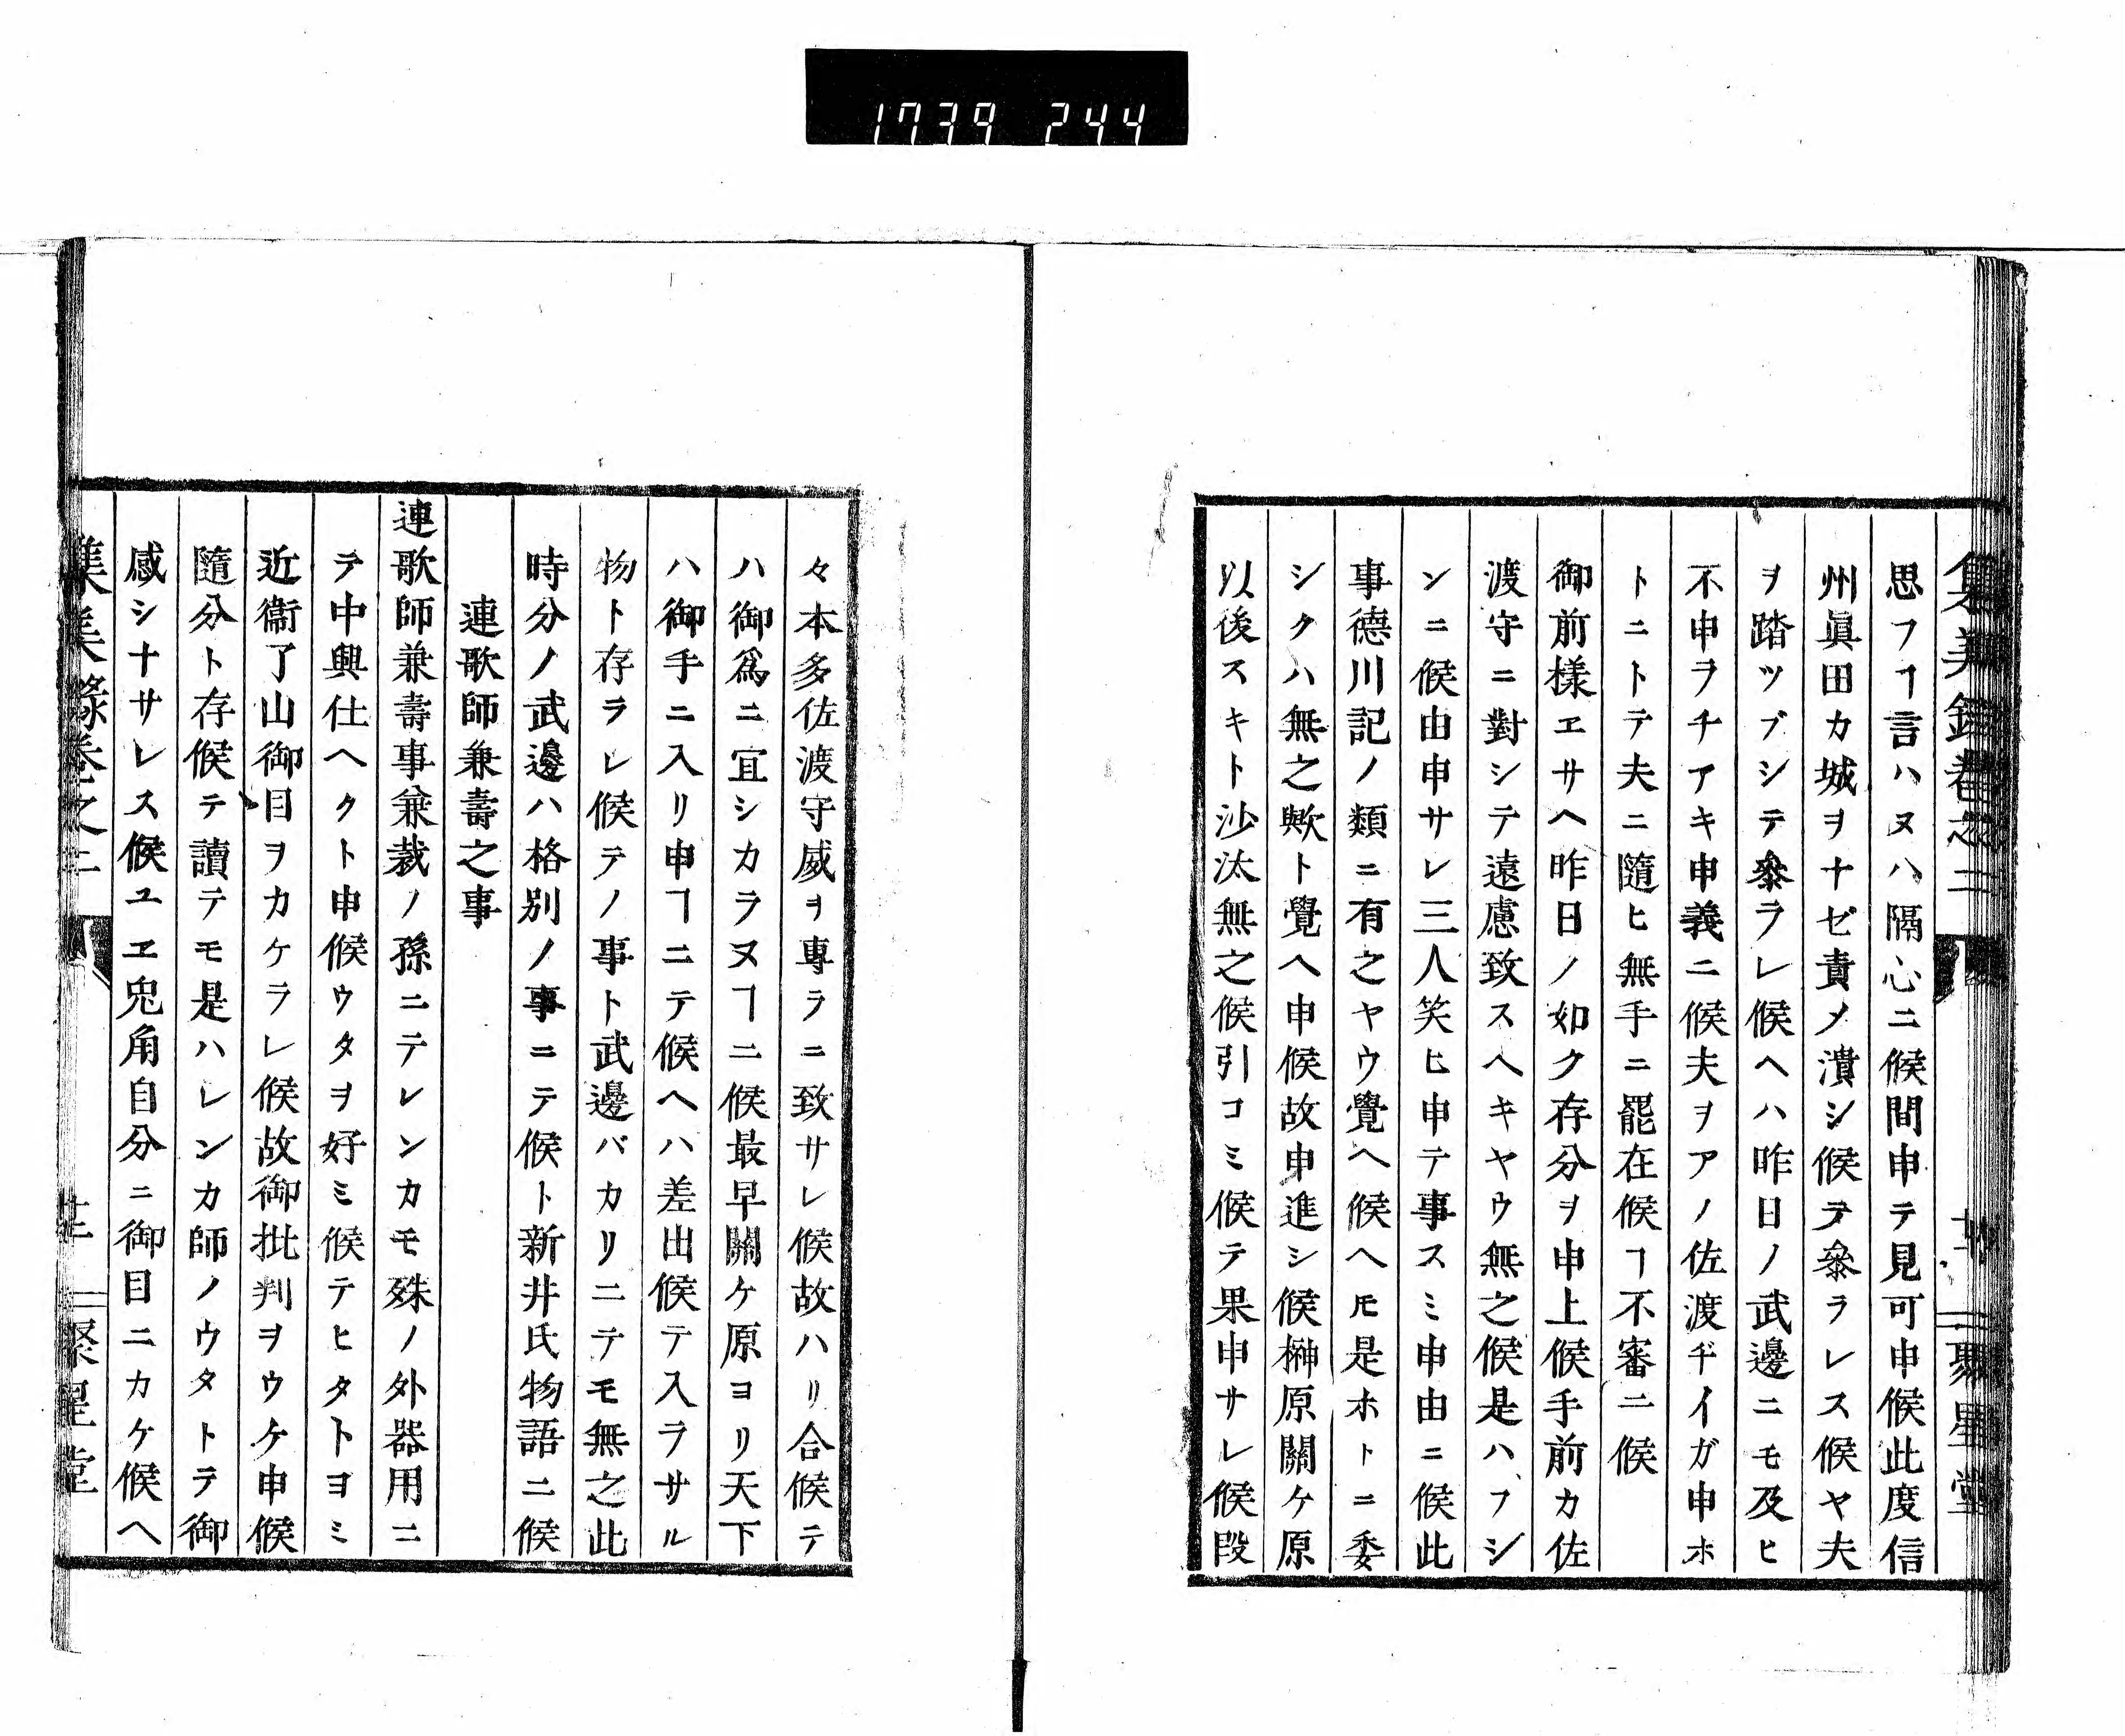 1739 244
集義錄卷之二
聚星堂
思フヿ言ハヌハ隔心ニ候間申テ見可申候此度信
州眞田カ城ヲナゼ責メ潰シ候テ參ラレス候ヤ夫
ヲ踏ツブシテ參ラレ候ヘハ昨日ノ武邊ニモ及ヒ
不申ヲチアキ申義ニ候夫ヲアノ佐渡ヂイガ申ホ
トニトテ夫ニ隨ヒ無手ニ罷在候ヿ不審ニ候
御前樣エサヘ昨日ノ如ク存分ヲ申上候手前カ佐
渡守ニ對シテ遠慮致スヘキヤウ無之候是ハフシ
ンニ候由申サレ三人笑ヒ申テ事スミ申由ニ候此
事德川記ノ類ニ有之ヤウ覺ヘ候ヘ𪜈是ホトニ委
シクハ無之歟ト覺ヘ申候故申進シ候榊原關ケ原
以後スキト沙汰無之候引コミ候テ果申サレ候段
々本多佐渡守威ヲ專ラニ致サレ候故ハリ合候テ
ハ御爲ニ宜シカラヌヿニ候最早關ケ原ヨリ天下
ハ御手ニ入リ申ヿニテ候ヘハ差出候テ入ラサル
物ト存ラレ候テノ事ト武邊バカリニテモ無之此
時分ノ武邊ハ格別ノ事ニテ候ト新井氏物語ニ候
連歌師兼壽之事
連歌師兼壽事兼裁ノ孫ニテレンカモ殊ノ外器用ニ
テ中興仕ヘクト申候ウタヲ好ミ候テヒタトヨミ
近衞了山御目ヲカケラレ候故御批判ヲウケ申候
隨分ト存候テ讀テモ是ハレンカ師ノウタトテ御
感シナサレス候ユヱ兜角自分ニ御目ニカケ候ヘ
集義錄卷之二
聚星堂